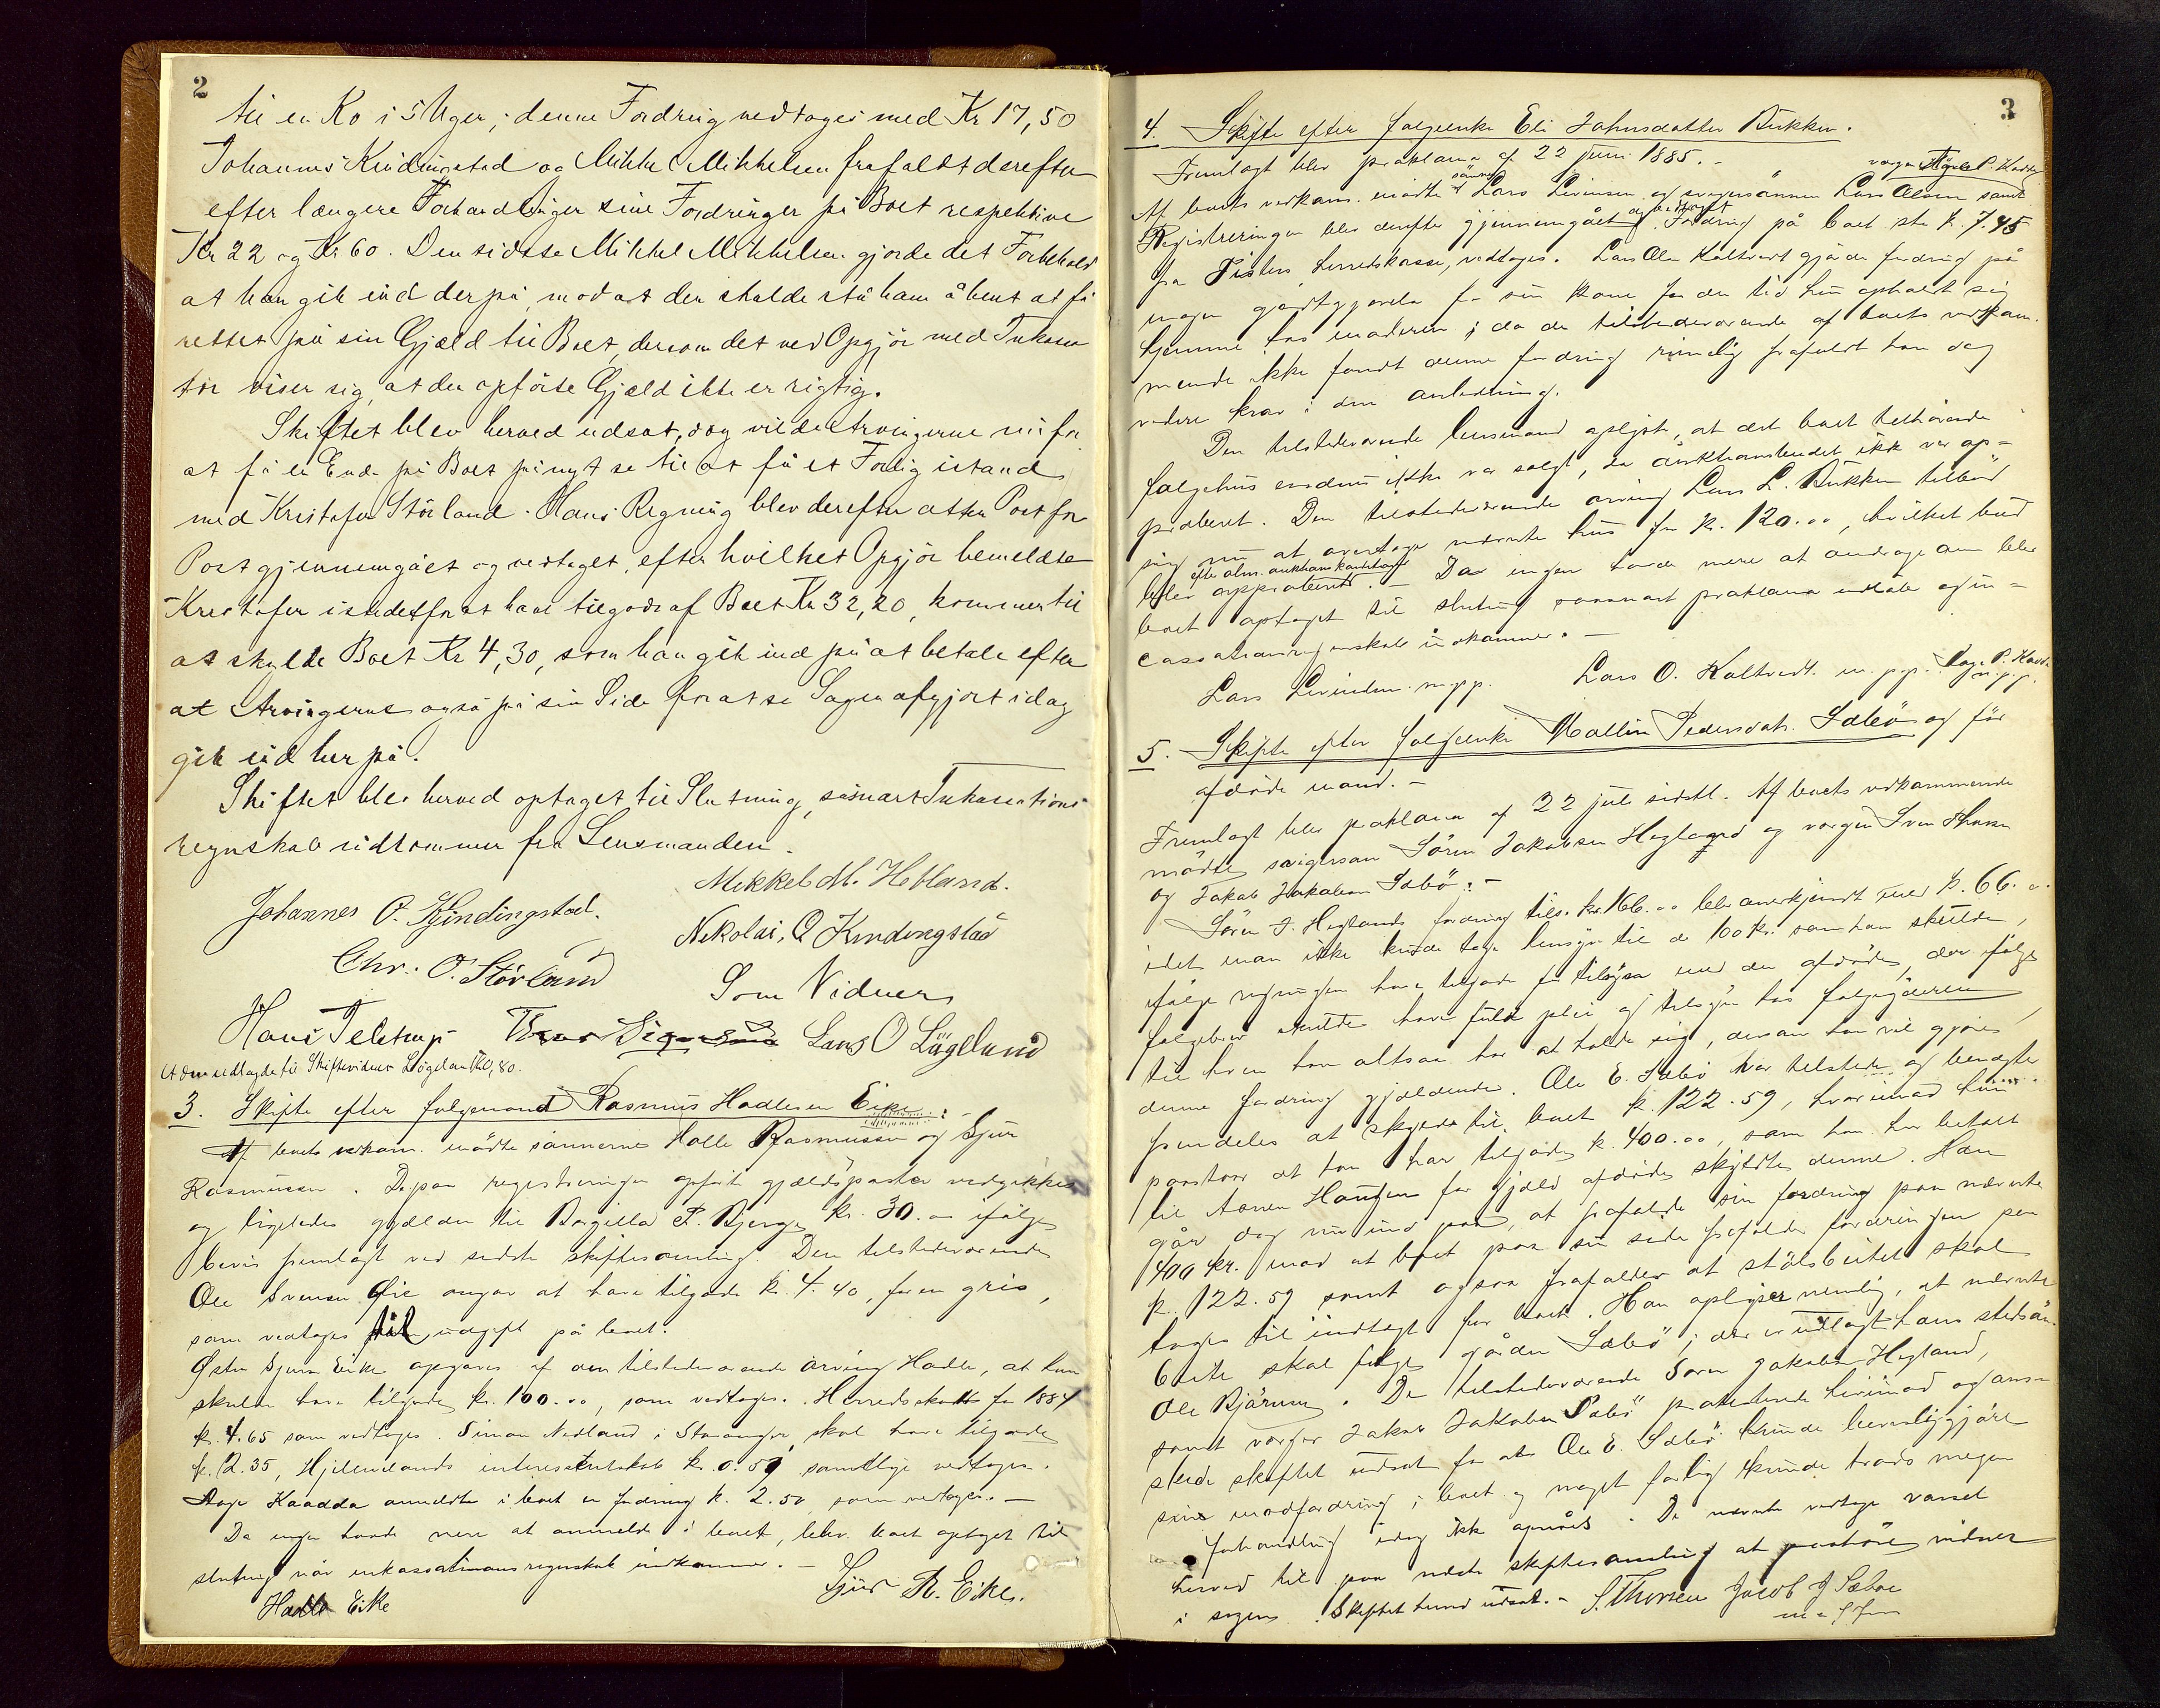 2
til en Ko i 5 Uger; denne Fordring vedtoges med Kr 17,50
Johannes Kindingstad og Mikkel Mikkelsen frafaldt derefter
efter længere Forhandlinger sine Fordringer på Boet respektive
Kr 22 og Kr 60. Den sidste Mikkel Mikkelsen gjorde det Forbehold
at han gik ind derpå, mod at der skulde stå ham åbent at få
rettet på sin Gjæld til Boet, dersom det ved Opgjör med Inkassa
tor viser sig, at den opförte Gjæld ikke er rigtig.
Skiftet blev herved udsat, dog vilde Arvingerne nu for
at få en Ende på Boet påny se til at få et Forlig istand
med Kristofer Störland. Hans Regning blev derefter atter Post for
Post gjennemgået og vedtaget, efter hvilket Opgjör bemeldte
Kristofer istedetfor at have tilgode af Boet Kr 32,20, kommer til
at skylde Boet Kr 4,30, som han gik ind på at betale efter
at Arvingerne også på sin Side for at se Sagen afgjort idag
gik ind herpå.
Skiftet blev herved optaget til Slutning, såsnart Inkassations
regnskab indkommer fra Lensmanden.
Mikkel M. Helland.
Johannes O. Kindingstad.
Nikolai, O Kindingstad
Chr. O. Störland
Som Vidner
Hans Telstrup Lars O Lägeland
3. Skifte efter folgemand Rasmus Hadlesen Eike:-
Af boets vedkom. mödte sönnerne Halle Rasmussen og Sjur
Rasmussen. De paa registreringen opförte gjældsposter vedgikkes
og ligeledes gjælden til Borgilla P. Bjerge kr. 30.00 ifölge
bevis fremlagt ved sidste skiftesamling. Den tilstedeværende
Ole Svensen Öie angav at have tilgode kr. 4.40, for en gris,
som vedtoges til udgift på boet.
Östen Sjursen Eike opgaves af den tilstedeværende arving Hadle, at han
skulde have tilgode kr. 100.00, som vedtoges. Herredsskatt for 1884
kr. 4.65 som vedtoges. Simon Nedland i Stavanger skal have tilgode
kr. 2.35, Hjelmelands interessentskab kr. 0.59 samtlige vedtoges.
Aage Kaada anmeldte i boet en fordring kr. 2.50 som vedtoges.-
Da ingen havde mere at anmelde i boet, blev boet optaget til
slutning når inkassationsregnskab indkommer.-
Hadle Eike Sjur R. Eike.
3
4. Skifte efter folgeenke Eli Johnsdatter Bukken.
Fremlagt blev proklama af 22 juni 1885.-
Af boets vedkom. mödte sönnen Lars Livinsen og svigersönnen Lars Olsen samt
Registreringen blev derefter gjennemgået og vedtaget. Fordring på boet stor k. 7.45
fra Fisters herredskasse, vedtoges. Lars Olsen Koltvedt gjorde fordring på
nogen godtgjörelse for sin kone for den tid hun opholdt sig
hjemme hos moderen; da de tilstedeværende af boets vedkom-
mende ikke fandt denne fordring rimelig frafaldt han dog
videre krav i den anledning.
Den tilstedeværende lensmand oplyste, at det boet tilhörende
folgehus endnu ikke var solgt, da auktionsbudet ikke var ap-
proberet. Den tilstedeværende arving Lars L. Bukken tilböd
sig nu at overtage nævnte hus for kr. 120.00, hvilket bud
efter alm. auktionskonditioner
blev approberet.- Da ingen havde mere at andrage om blev
boet optaget til slutning saasnart proklama udlöb og in-
cassationsregnskab indkommer.-
Lars Livinsen. m.p.p. Lars O. Koltvedt. m.p.p. Aage P. Kaada
m.p.p.
5. Skifte efter folgeenke Mallin Pedersdatr. Sæbö og för
afdöde mand.-
Fremlagt blev proklama af 22 juli sidstl. Af boets vedkommende
mödte svigersön Sören Jakobsen Hegland og vergen Sven Thorsen
og Jakob Jakobsen Sæbö:-
Sören J. Heglands fordring tils. kr. 166.00 blev anerkjendt med kr. 66.00
idet man ikke kunde tage hensyn til de 100 kr. som han skulde,
ifölge regningen have tilgode for tilsyn med den afdöde, der ifölge
folgebrev skulde have fuld pleie og tilsyn hos folgeyderen,
til hvem han altsaa har at holde sig, dersom han vil gjöre
denne fordring gjældende. Ole E. Sæbö var tilstede og benægter
fremdeles at skylde til boet kr. 122.59, hvorimod han
paastaar at han har tilgode kr. 400.00, som han har betalt
til Aanen Haugen for gjæld afdöde skyldte denne. Han
går dog nu ind paa, at frafalde sin fordring paa nævnte
400 kr. mod at boet paa sin side frafalder fordringen paa
kr. 122.59 samt ogsaa frafalder at stölsbeitet skal
tages til indtægt for boet. Han oplyser nemlig, at nævnte
beite skal fölge gården Sæbö; der er udlagt hans stedsön
Ole Bjärum. De tilstedeværende Sören Jakobsen Hegland,
samt verger Jakob Jakobsen Sæbö protesterede herimod og önskede
skiftet udsat for at Ole E. Sæbö kunde bevisliggjöre
sin modfordring i boet og noget forlig kunde trods megen
forhandling idag ikke opnåes. De nævnte vedtoge varsel
herved til paa næste skiftesamling at paahöre vidner
i sagen. Skiftet herved udsat.- S. Thorsen Jacob J Sæboe